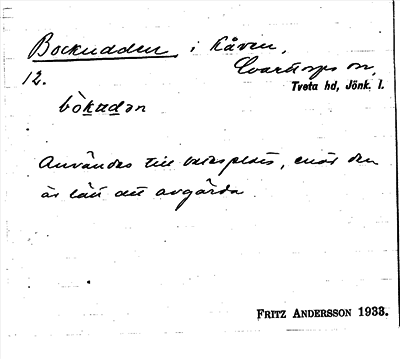 Bockudden, i Råven,
Svarttorps sn,
12.
Tveta hd, Jönk. l.
bòkudən
Användes till betesplats, enär den
är lätt att avgärda.
FRITZ ANDERSSON 1933.